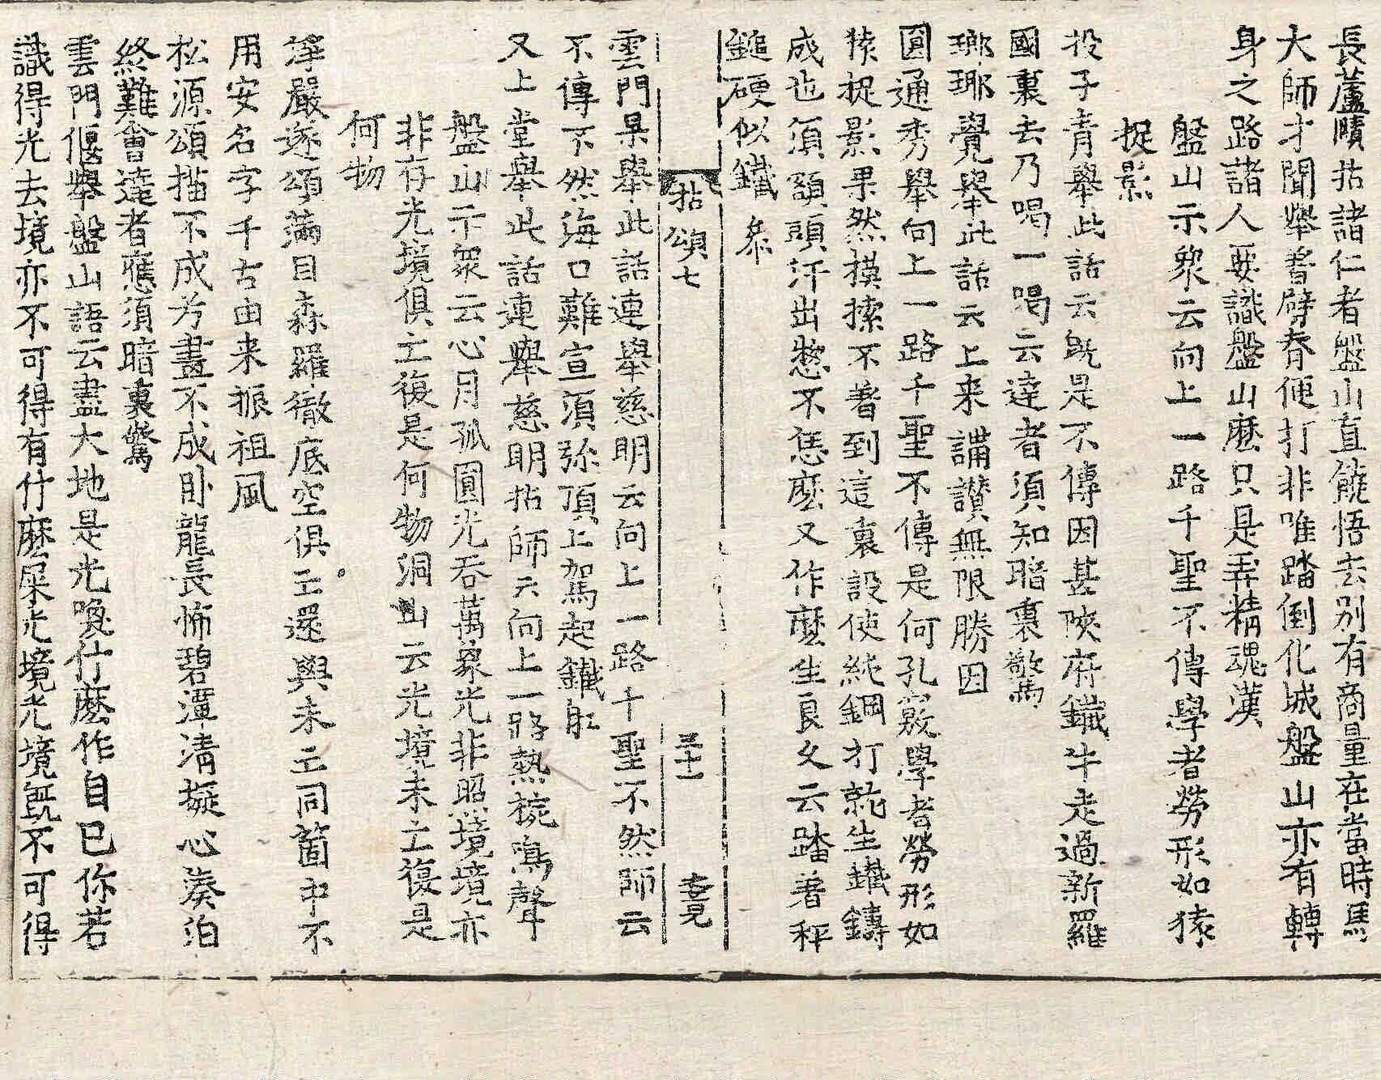 長蘆賾拈諸仁者盤山直饒悟去別有商量在當時馬
大師才聞擧着劈脊便打非唯踏倒化城盤山亦有轉
身之路諸人要識盤山麽只是弄精魂漢
盤山示衆云向上一路千聖不傳學者勞形如猿
捉影
投子青擧此話云旣是不傳因甚陜府鐵牛走過新羅
國裏去乃喝一喝云達者須知暗裏驚
瑯琊覺擧此話云上来講讃無限勝因
圓通秀擧向上一路千聖不傳是何孔竅學者勞形如
猿捉影果然摸摸不着到這裏設使純鋼打就生鐵鑄
成也須額頭汗出惣不恁麽又作麽生良久云踏着秤
鎚硬似鐵
拈頌七
三十一
雲門杲擧此話連擧慈明云向上一路千聖不然師云
不傳不然海口難宣須弥頂上駕起鐵舡
又上堂擧此話連擧慈明拈師云向上一路熱椀鳴聲
盤山示衆云心月孤圓光吞萬象光非照境境亦
非存光境俱亡復是何物洞山云光境未亡復是
何物
淨嚴遂頌滿目森羅徹底空俱亡還與未亡同箇中不
用安名字千古由来振祖風
松源頌描不成兮畫不成卧龍長怖碧潭清擬心湊泊
終難會達者應須暗裏驚
雲門偃擧盤山語云盡大地是光喚什麽作自己你若
識得光去境亦不可得有什麽屎光境光境旣不可得